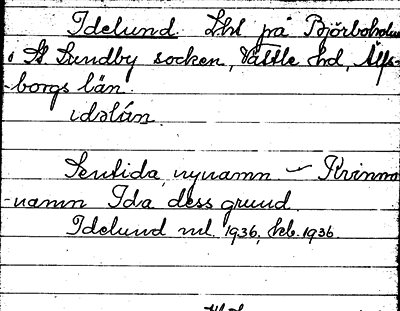 Idelund. Lht på Björboholm
i St Lundby socken, Vättle hd, Älfs-
borgs län.
idəlún
Sentida nynamn – Kvinno-
namn Ida dess grund.
Idelund ml. 1936, kb. 1936.